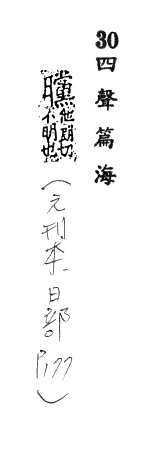 30四聲篇海
曭他朗切不明也
(元刊本.日部P.177)